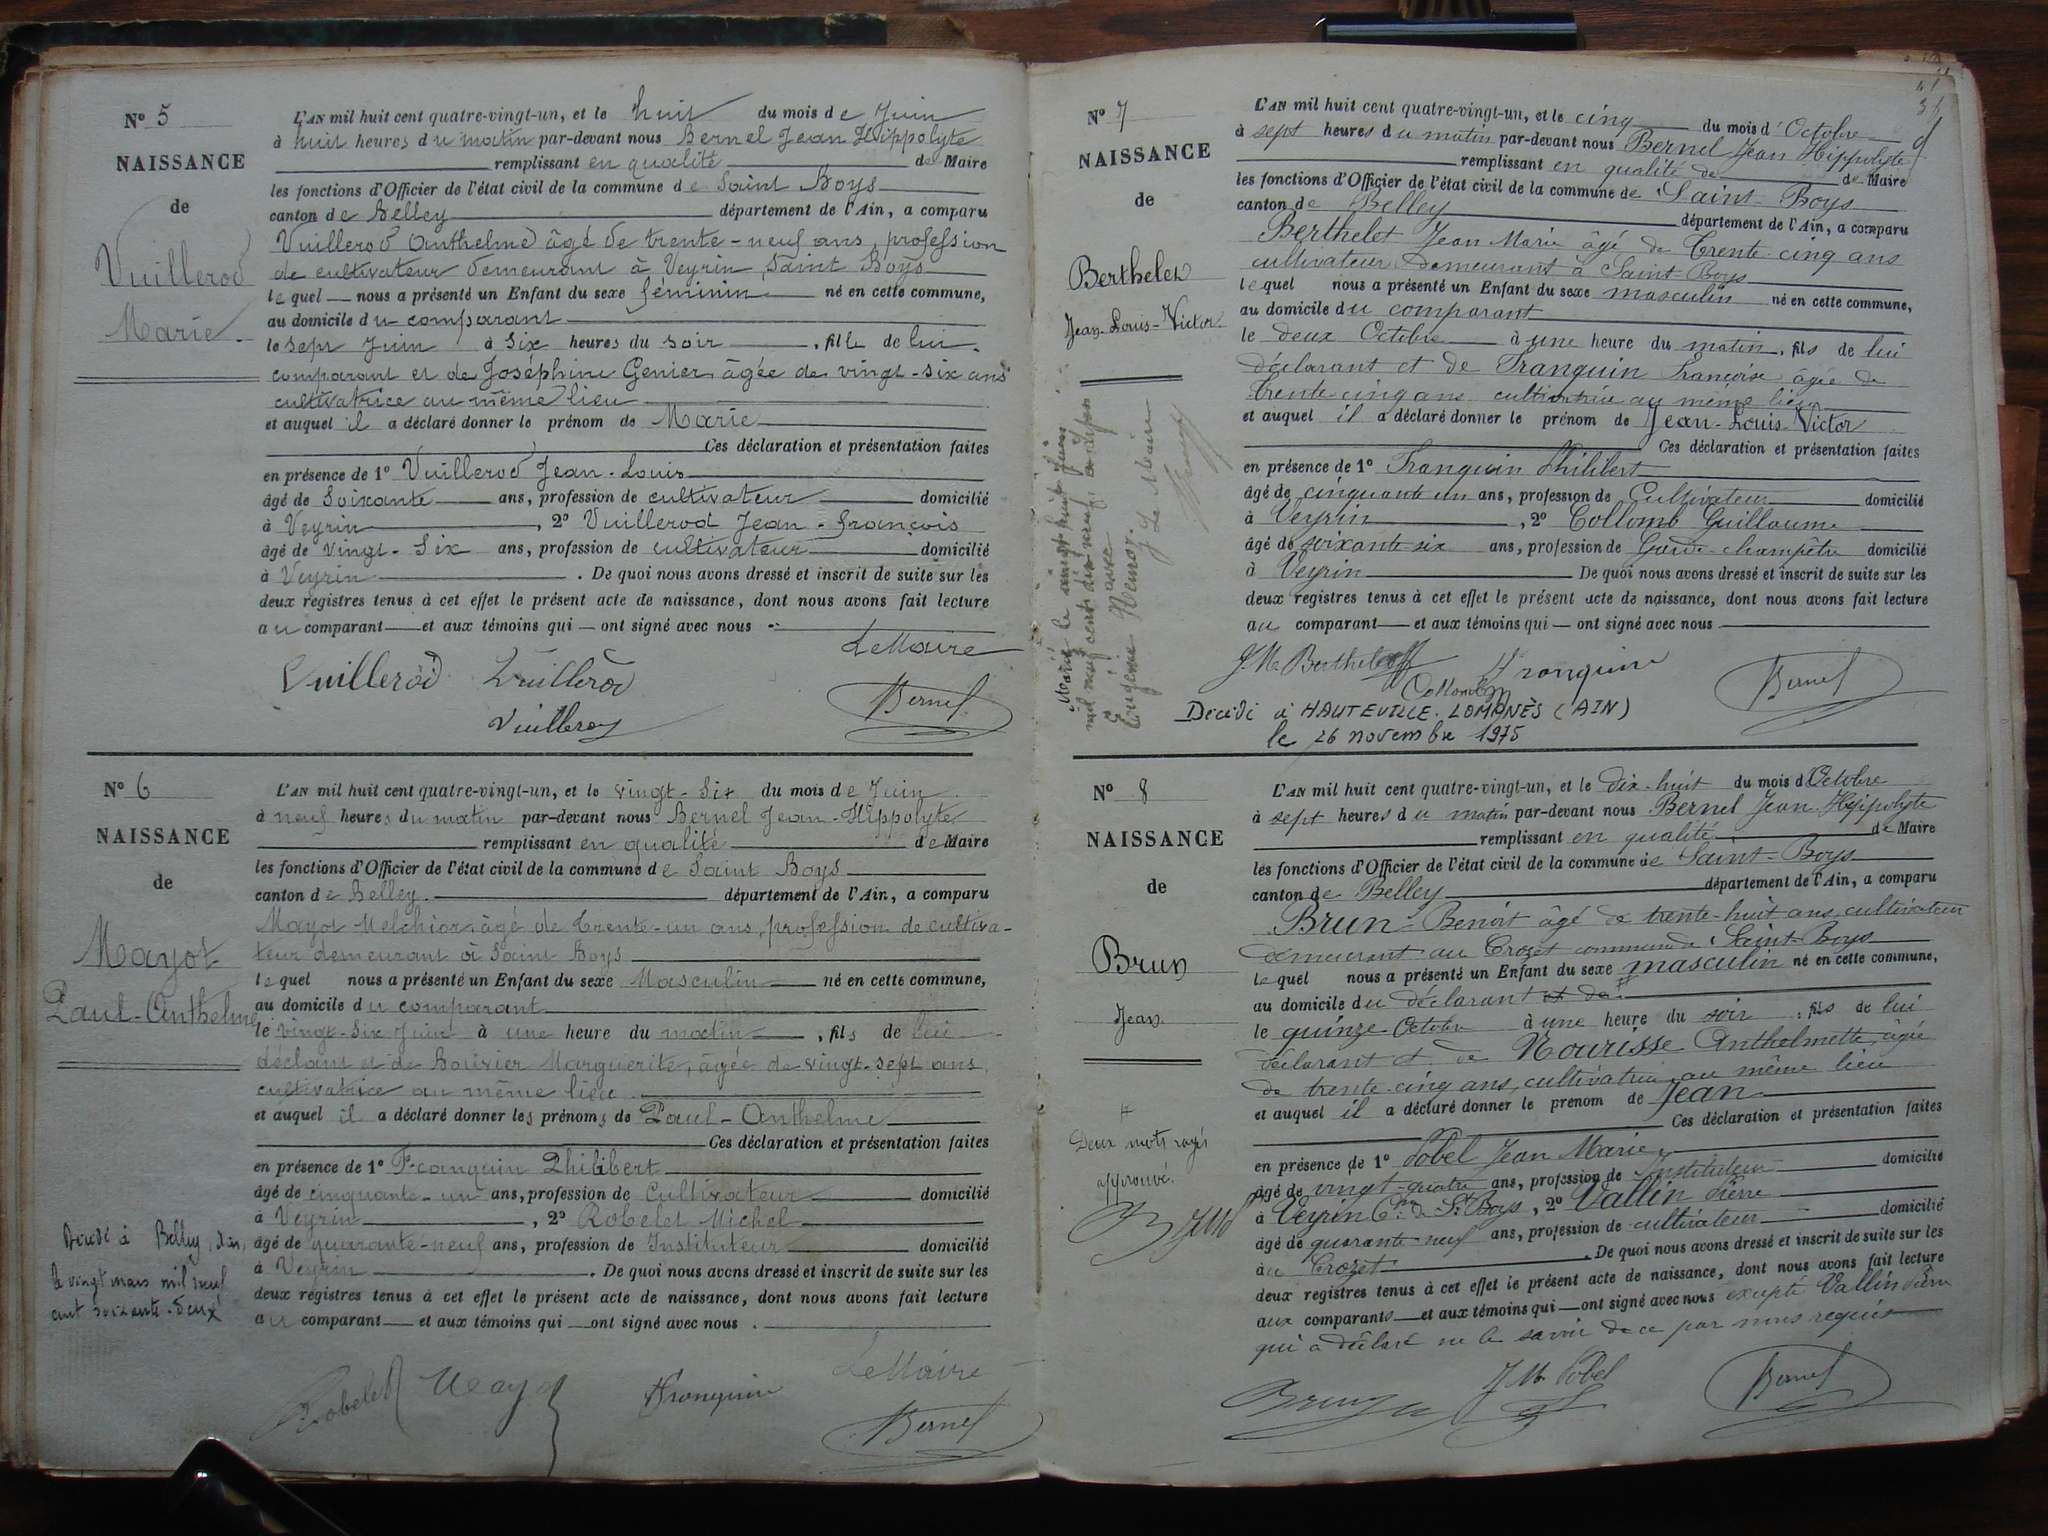 N° 5
NAISSANCE
de
Vuillerod
Marie
L'AN mil huit cent quatre-vingt-un, et le huit du mois de Juin
à huit heures du matin par-devant nous Bernel Jean Hippolyte
remplissant en qualité de Maire
les fonctions d'Officier de l'état civil de la commune de Saint Boys
canton de Belley département de l'Ain, a comparu
Vuillerod Anthelme âgé de trente-neuf ans, profession
de cultivateur demeurant à Veyrin Saint Boys
lequel nous a présenté un Enfant du sexe féminin né en cette commune,
au domicile du comparant
le sept Juin à six heures du soir, fille de lui
comparant et de Joséphine Genier, âgée de vingt-six ans
cultivatrice au même lieu
et auquel il a déclaré donner le prénom de Marie
Ces déclaration et présentation faites
en présence de 1° Vuillerod Jean-Louis
âgé de soixante ans, profession de cultivateur domicilié
à Veyrin, 2° Vuillerod Jean-François
âgé de vingt-six ans, profession de cultivateur domicilié
à Veyrin. De quoi nous avons dressé et inscrit de suite sur les
deux registres tenus à cet effet le présent acte de naissance, dont nous avons fait lecture
au comparant et aux témoins qui ont signé avec nous
Le Maire
Vuillerod Vuillerod
Vuillerod
Bernel
N° 6
NAISSANCE
de
Mayot
Paul-Anthelme
L'AN mil huit cent quatre-vingt-un, et le vingt-six du mois de Juin
à neuf heures du matin par-devant nous Bernel Jean-Hippolyte
remplissant en qualité de Maire
les fonctions d'Officier de l'état civil de la commune de Saint Boys
canton de Belley département de l'Ain, a comparu
Mayot Melchior, âgé de trente-un ans, profession de cultiva-
teur demeurant à Saint Boys
lequel nous a présenté un Enfant du sexe Masculin né en cette commune,
au domicile du comparant
le vingt-six Juin à une heure du matin, fils de lui
déclant et de Bouvier Marguerite, âgée de vingt-sept ans,
cultivatrice au même lieu
et auquel il a déclaré donner les prénoms de Paul-Anthelme
Ces déclaration et présentation faites
en présence de 1° Franquin Philibert
âgé de cinquante-un ans, profession de Cultivateur domicilié
à Veyrin, 2° Robelet Michel
âgé de quarante-neuf ans, profession de Instituteur domicilié
à Veyrin. De quoi nous avons dressé et inscrit de suite sur les
deux registres tenus à cet effet le présent acte de naissance, dont nous avons fait lecture
au comparant et aux témoins qui ont signé avec nous.
Décédé à Belley, Ain,
le vingt mars mil neuf
cent soixante-deux
Le Maire
Robelet Mayot Franquin
Bernel
N° 7
NAISSANCE
de
Berthelet
Jean-Louis-Victor
L'AN mil huit cent quatre-vingt-un, et le cinq du mois d'Octobre
à sept heures du matin par-devant nous Bernel Jean Hippolyte
remplissant en qualité de de Maire
les fonctions d'Officier de l'état civil de la commune de Saint-Boys
canton de Belley département de l'Ain, a comparu
Berthelet Jean Marie âgé de trente-cinq ans
cultivateur demeurant à Saint-Boys
lequel nous a présenté un Enfant du sexe masculin né en cette commune,
au domicile du comparant
le deux Octobre à une heure du matin, fils de lui
déclarant et de Franquin Françoise âgée de
trente cinq ans cultivatrice au même lieu
et auquel il a déclaré donner le prénom de Jean-Louis-Victor
Ces déclaration et présentation faites
en présence de 1° Franquin Philibert
âgé de cinquante un ans, profession de Cultivateur domicilié
à Veyrin, 2° Collomb Guillaume
âgé de soixante six ans, profession de Garde-champêtre domicilié
à Veyrin De quoi nous avons dressé et inscrit de suite sur les
deux registres tenus à cet effet le présent acte de naissance, dont nous avons fait lecture
au comparant et aux témoins qui ont signé avec nous
Marié le vingt huit juin
mil neuf cent dix neuf
avec
Eugénie
Le Maire
J.M. Berthelet Franquin
Collomb
Bernel
Décédé à HAUTEVILLE-LOMPNÈS (AIN)
le 26 novembre 1975
N° 8
NAISSANCE
de
Brun
Jean
L'AN mil huit cent quatre-vingt-un, et le dix-huit du mois d'Octobre
à sept heures du matin par-devant nous Bernel Jean Hippolyte
remplissant en qualité de Maire
les fonctions d'Officier de l'état civil de la commune de Saint-Boys
canton de Belley département de l'Ain, a comparu
Brun Benoit âgé de trente-huit ans, cultivateur
demeurant au Crozet commune de Saint-Boys
lequel nous a présenté un Enfant du sexe masculin né en cette commune,
au domicile du déclarant et de #
le quinze Octobre à une heure du soir, fils de lui
déclarant et de Nourisse Anthelmette, âgée
de trente-cinq ans, cultivatrice au même lieu
et auquel il a déclaré donner le prénom de Jean
Ces déclaration et présentation faites
en présence de 1° Pobel Jean Marie
âgé de vingt-quatre ans, profession de Instituteur domicilié
à Veyrin Cne de St Boys, 2° Vallin Pierre
âgé de quarante-neuf ans, profession de cultivateur domicilié
au Crozet. De quoi nous avons dressé et inscrit de suite sur les
deux registres tenus à cet effet le présent acte de naissance, dont nous avons fait lecture
aux comparants et aux témoins qui ont signé avec nous excepté Vallin Pierre
qui a déclaré ne le savoir de ce par nous requis
#
Deux mots rayés
approuvé.
J.M. Pobel
Brun
Bernel